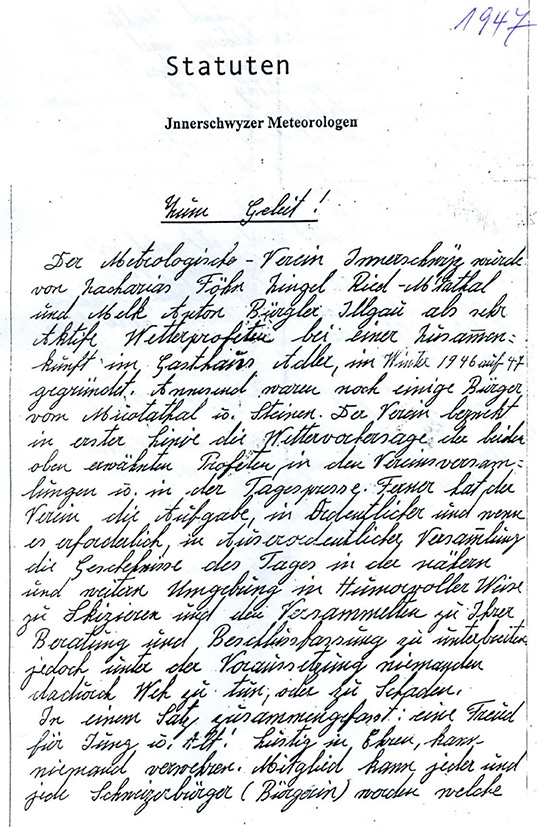 1947
Statuten
Jnnerschwyzer Meteorologen
Zum Geleit!
Der Metrologische-Verein Innerschwyz wurde
von Zacharias Föhn Zingel Ried-M'thal
und Melk Anton Bürgler, Illgau als sehr
Aktife Wetterprofeten bei einer Zusamen=
kunft im Gasthaus Adler, im Winter 1946 auf 47
gegründet. Annesend waren noch einige Bürger
vom Muotathal u. Steinen. Der Verein bezwekt
in erster Linie die Wettervorhersage der beiden
oben erwähnten Profeten, in den Vereinsversam=
lungen u. in der Tagespresse. Ferner hat der
Verein die Aufgabe, in Ordentlicher und wenn
es erforderlich, in Auserordentlicher Versamlung
die Geschehnisse des Tages in der nähern
und weitern Umgebung in Humorvoller Weise
zu Skizieren und den Versammelten zu Ihrer
Beratung und Beschlussfassung zu unterbreiten
jedoch unter der Voraussetzung niemanden
dadurch Weh zu tun, oder zu Schaden.
In einem Satz zusammengefasst: eine Freud
für Jung u. Alt! Lustig in Ehren, kann
niemand verwehren. Mitglied kann jeder und
jede Schweizerbürger (Bürgerin) werden welche